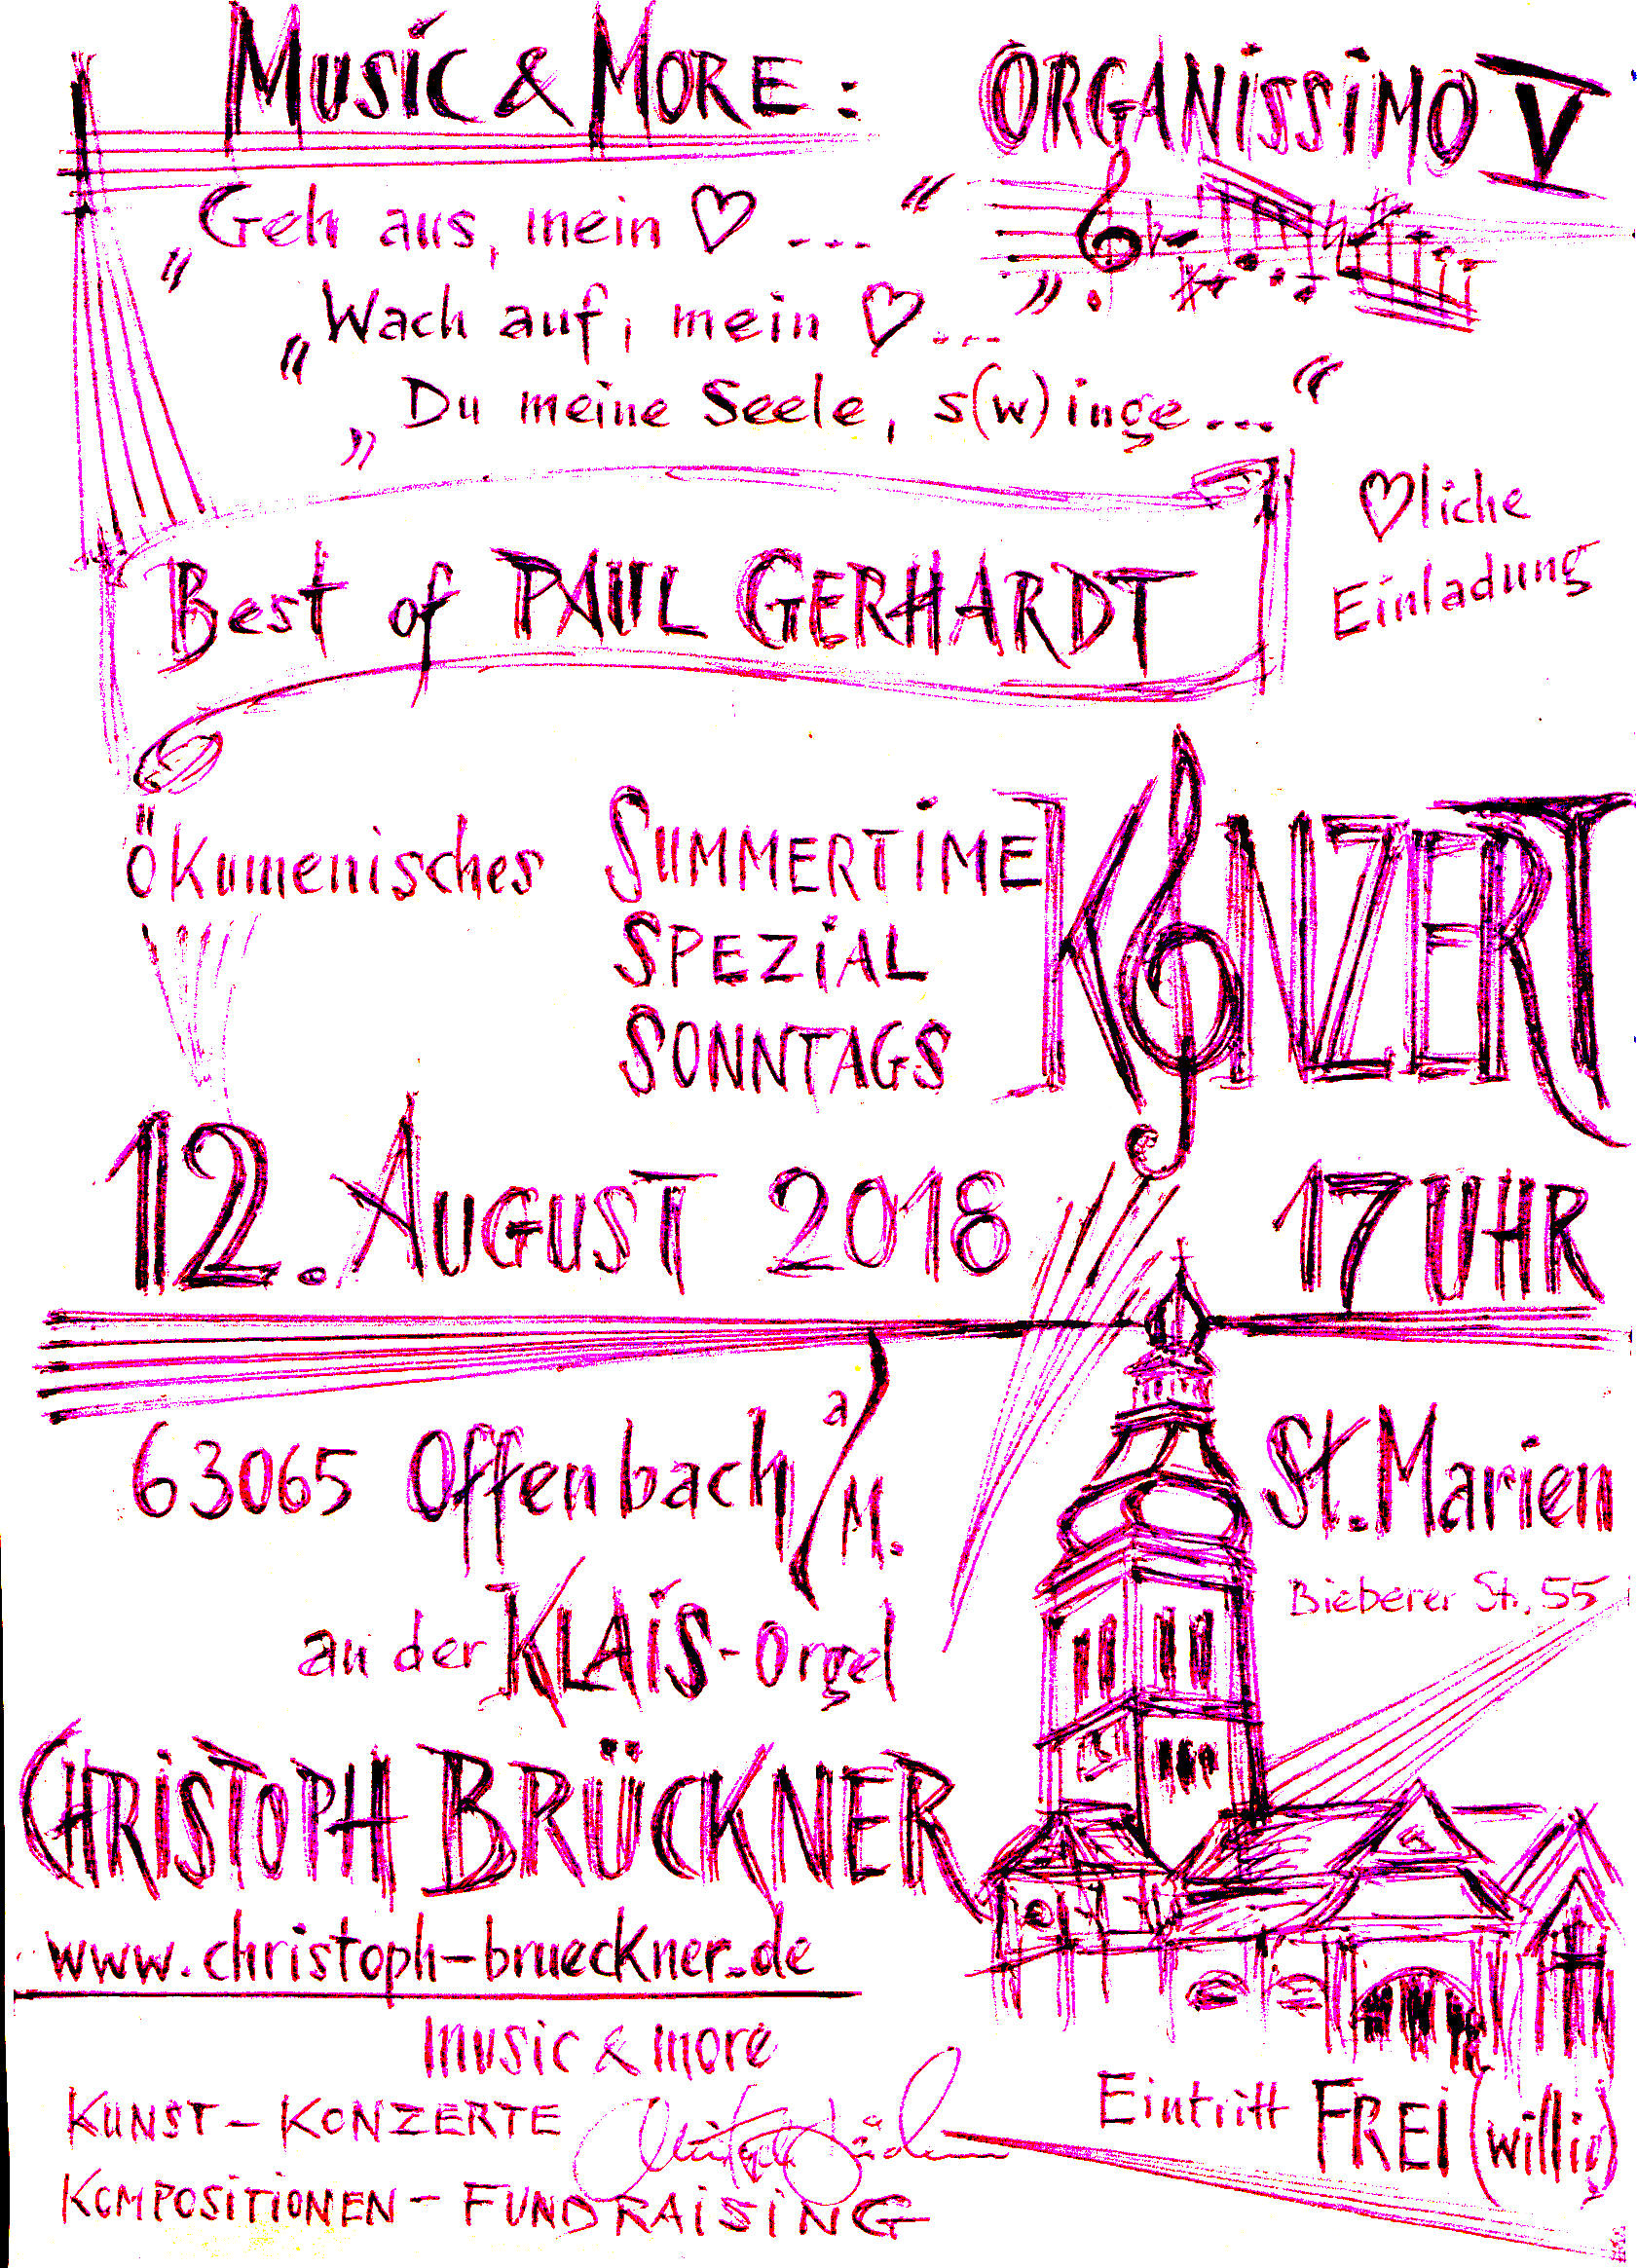 MUSIC & MORE: ORGANISSIMO V
„Geh aus, mein ♡ ...“
„Wach auf, mein ♡ ...“
„Du meine Seele, s(w)inge ...“
♡liche
Einladung
Best of PAUL GERHARDT
ÖKumenisches SUMMERTIME
SPEZIAL
SONNTAGS
KONZERT
12. AUGUST 2018 17 UHR
63065 Offenbach a/M.
St. Marien
Bieberer Str. 55
an der KLAIS-Orgel
CHRISTOPH BRÜCKNER
www.christoph-brueckner.de
music & more
KUNST - KONZERTE
KOMPOSITIONEN - FUNDRAISING
Eintritt FREI (willig)